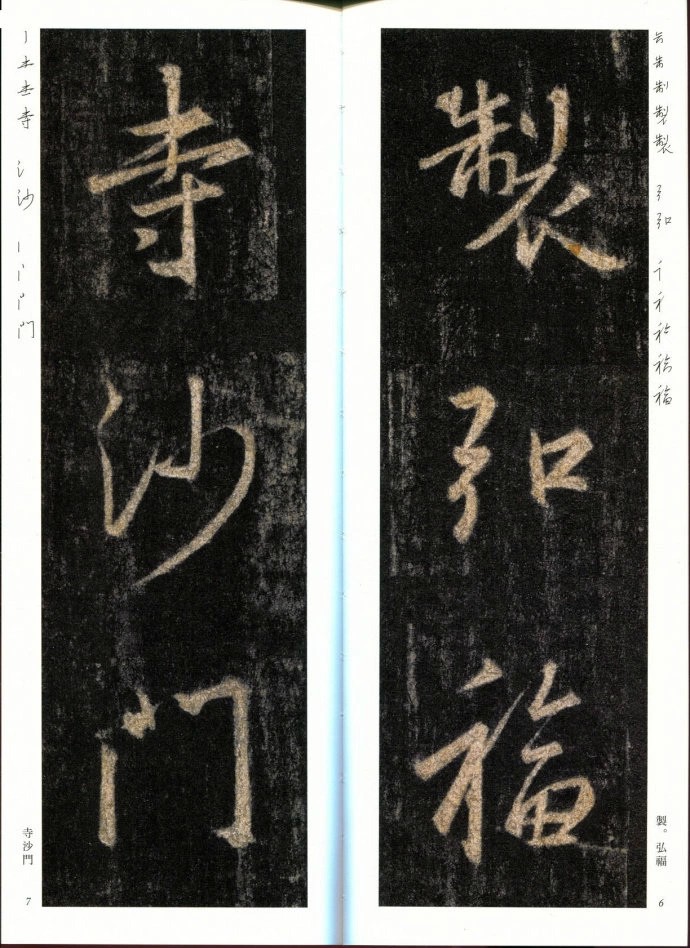 製弘福
製。弘福
6
寺沙門
寺沙門
7